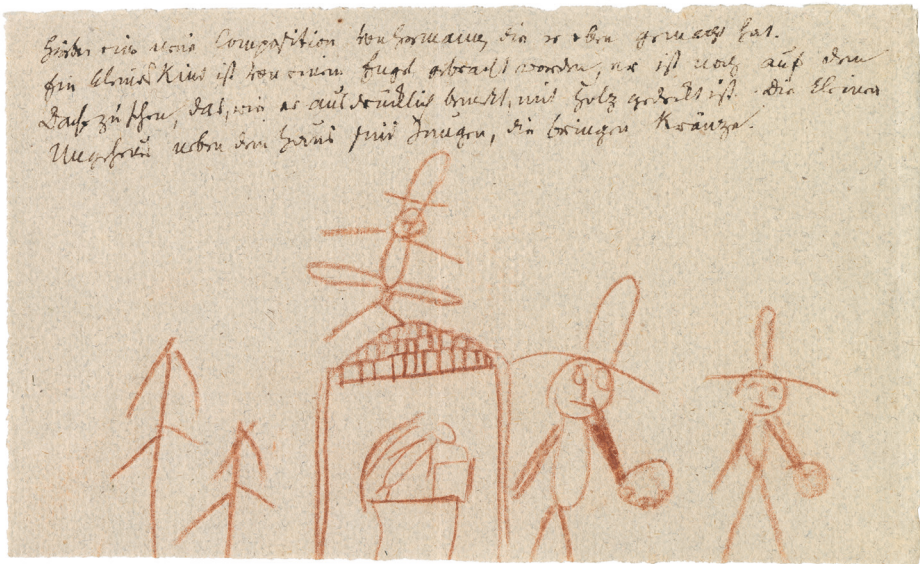 eine neue Composition von Hermann, die er eben gemacht hat.
Ein kleines Kind ist von einem Engel gebracht worden, er ist noch auf dem
Dach zu sehen, das, wie er ausdrücklich bemerkt, mit Holz gedeckt ist. Die kleinen
Ungeheuer neben dem Haus sind Jungen, die bringen Kränze.